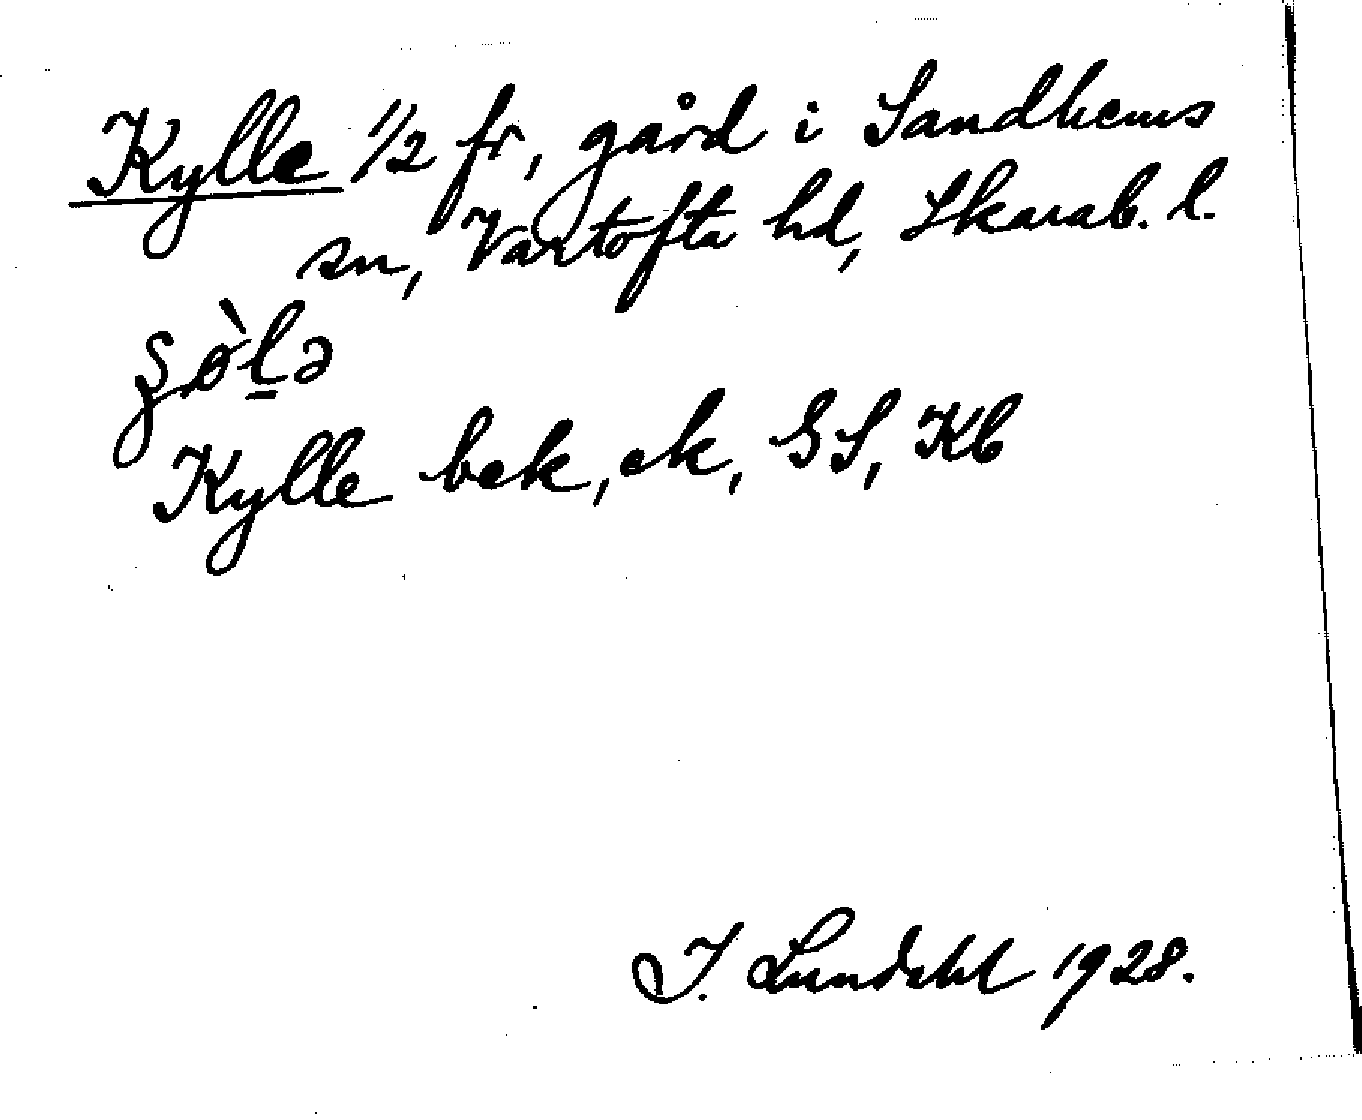 Kylle 1/2 fr, gård i Sandhems
sn, Vartofta hd, Skarab. l.
Kylle bek, ek, GS, Kb
I. Lundahl 1928.